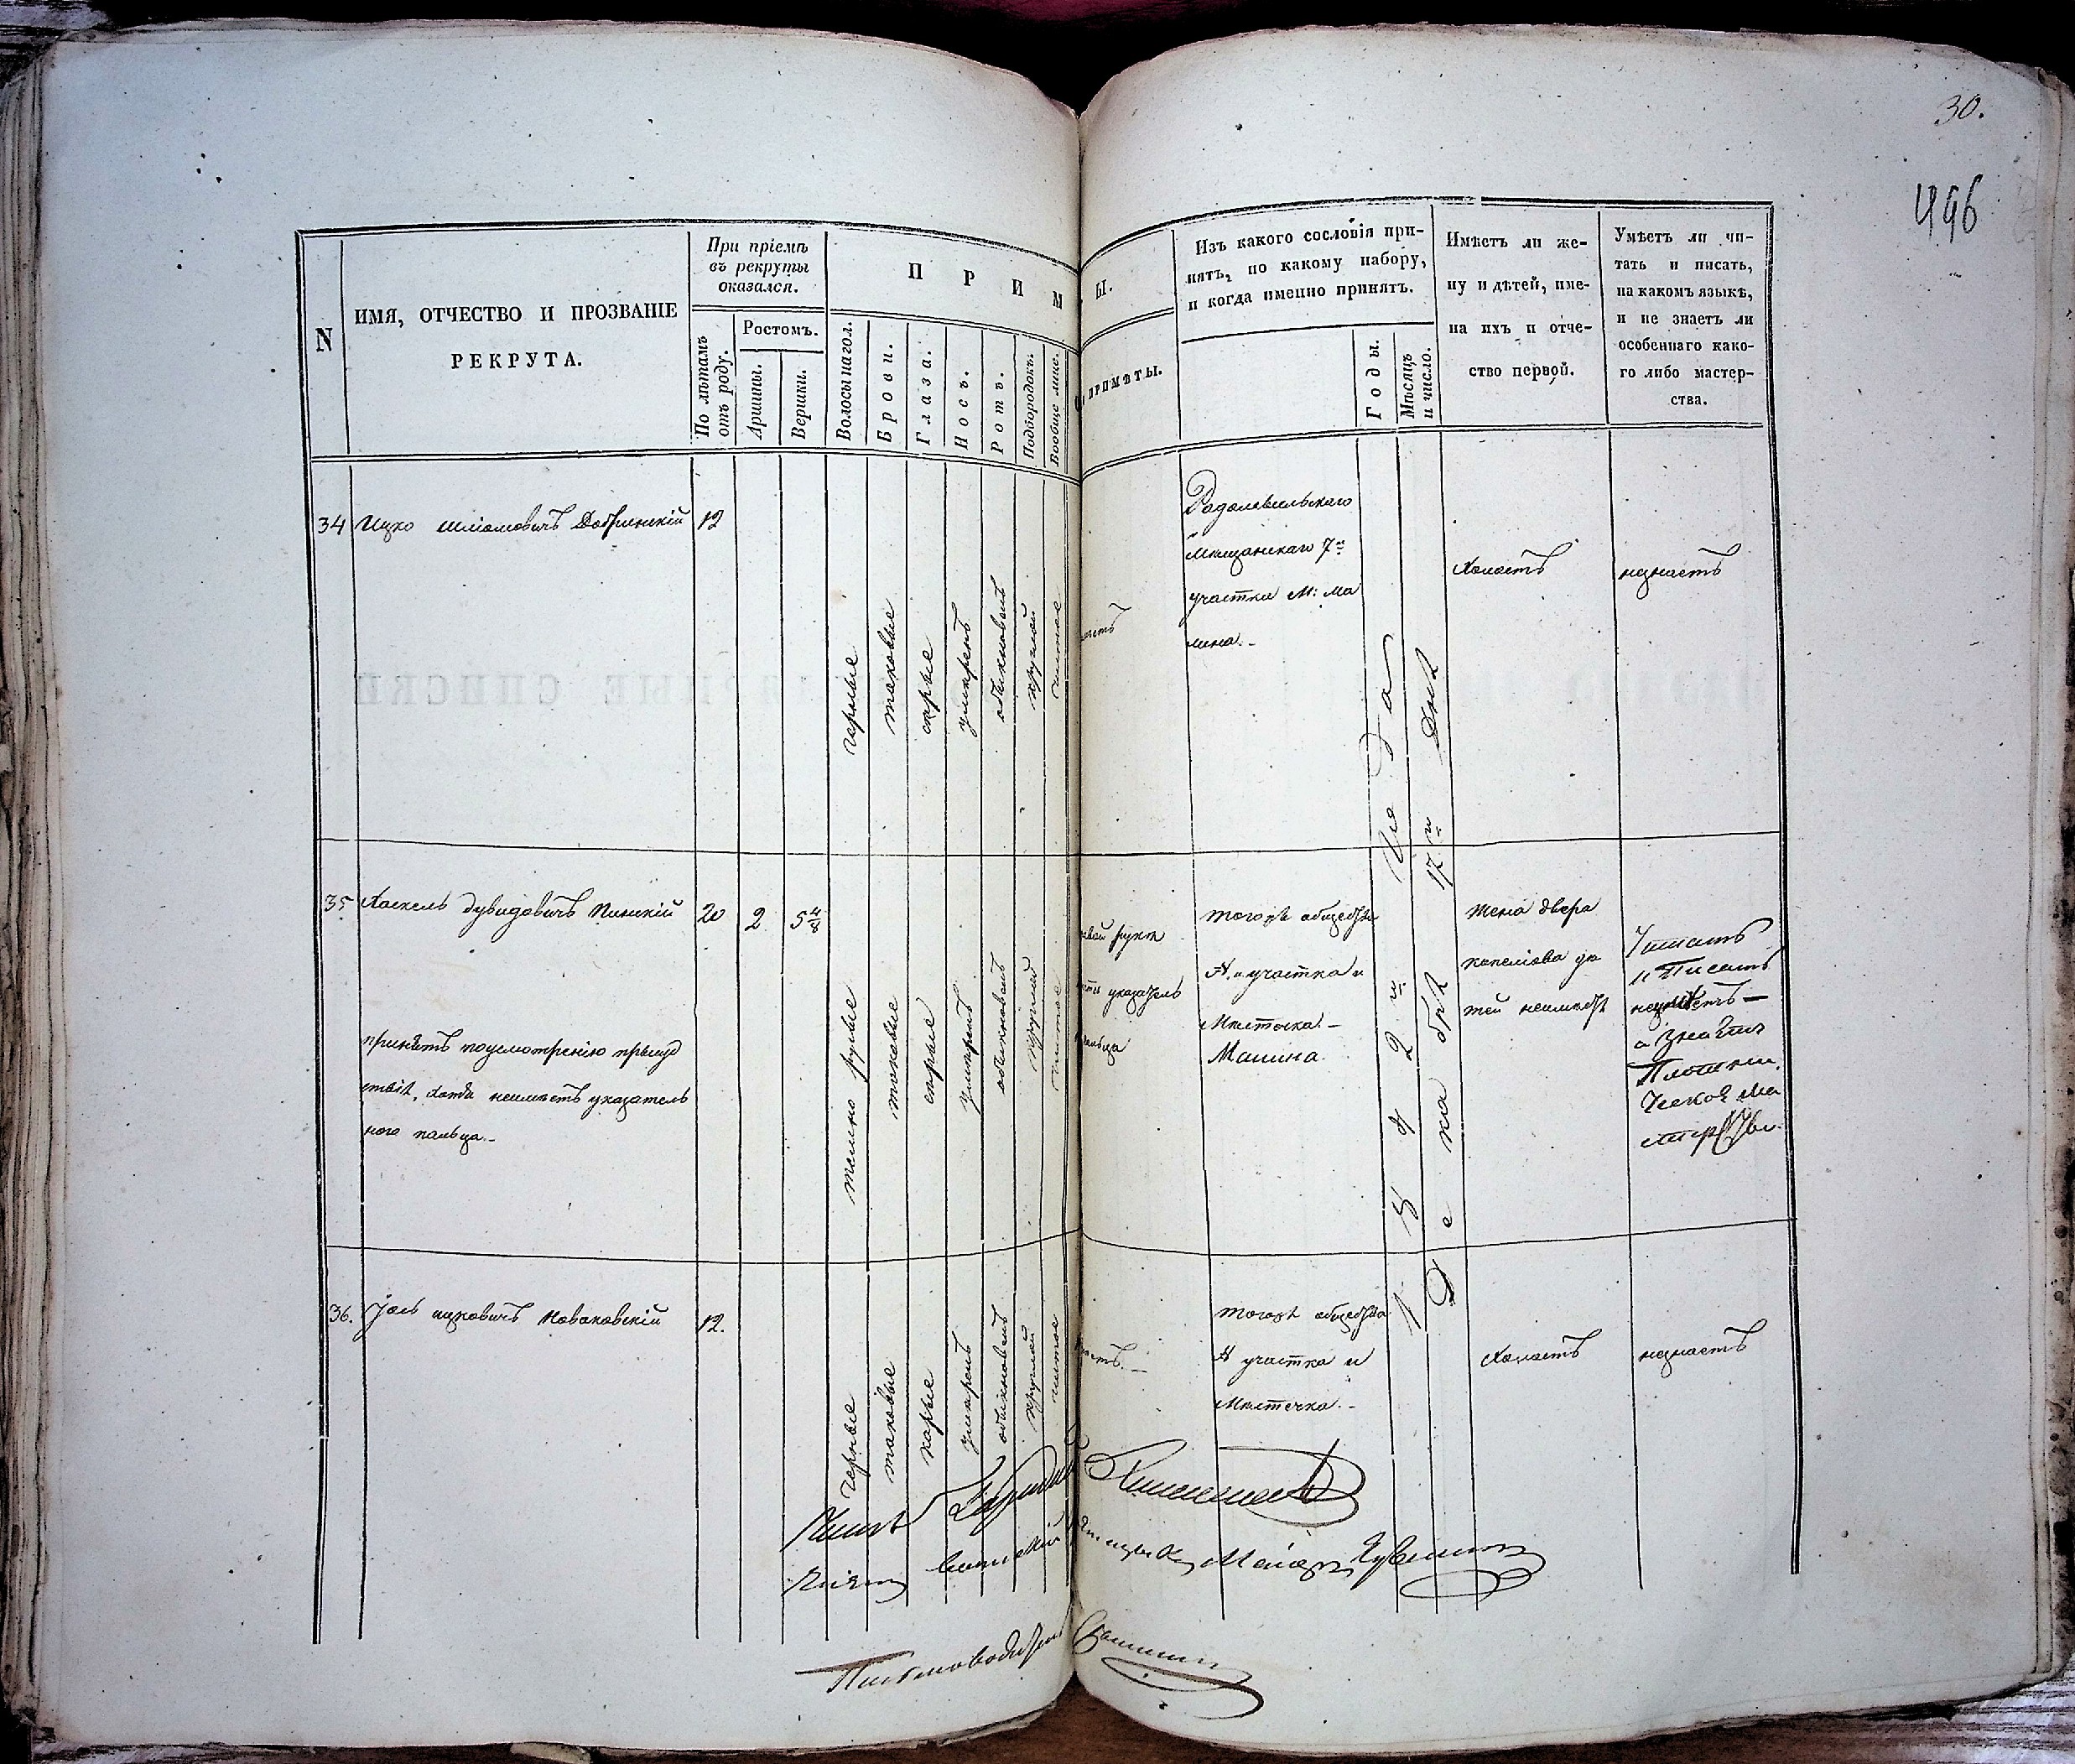 30.
496
N
ИМЯ, ОТЧЕСТВО И ПРОЗВАНІЕ
РЕКРУТА.
При пріемѣ
въ рекруты
оказался.
По лѣтамъ
отъ роду.
Ростомъ.
Аршины.
Вершки.
П Р И М
Ы.
Волосы на гол.
Брови.
Глаза.
Носъ.
Ротъ.
Подбородокъ.
Вообще лице.
ПРИМѢТЫ.
Изъ какого сословія при-
нятъ, по какому набору,
и когда именно принятъ.
Годы.
Мѣсяцъ
и число.
Имѣетъ ли же-
ну и дѣтей, име-
на ихъ и отче-
ство первой.
Умѣетъ ли чи-
тать и писать,
на какомъ языкѣ,
и не знаетъ ли
особеннаго како-
го либо мастер-
ства.
34
Ицко Шліомовичъ Добринскій
12
черные
таковые
сѣрые
умѣренъ
обыкновенъ
круглой
чистое
Радомысльскаго
Мѣщанскаго 7го
участка М: Ма
лина.-
Холостъ
незнаетъ
35
Хаскель Дувидовичъ Пинскій
20
2
5 4/8
принятъ поусмотренію присуд
ствія, хотя неимѣетъ указатель
наго пальца.-
темно русые
таковые
сѣрые
умѣренъ
обыкновенъ
круглый
чистое
руки
указатель
пальца
тогожъ общества
участка и
Мѣстечка.-
Малина.
жена Двера
дѣ
тей неимѣетъ
Читать
и Писать
неумѣетъ—
а знаетъ
Плотни
ческое ма
стерство.
1842го Года
Декабря 17го Дня
36.
Іось Ицковичъ Новаковскій
12.
черные
таковые
карые
умѣренъ
обыкновенъ
круглой
чистое
тогожъ общества
участка и
Мѣстечка.-
Холостъ
незнаетъ
Маіоръ
Письмоводитель